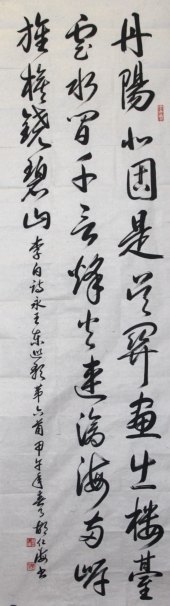 丹陽北固是吴關畫出樓臺
雲水間千岩烽火連滄海兩岸
旌旗繞碧山 李白詩永王東巡歌第六首甲午年春月胡仁海書